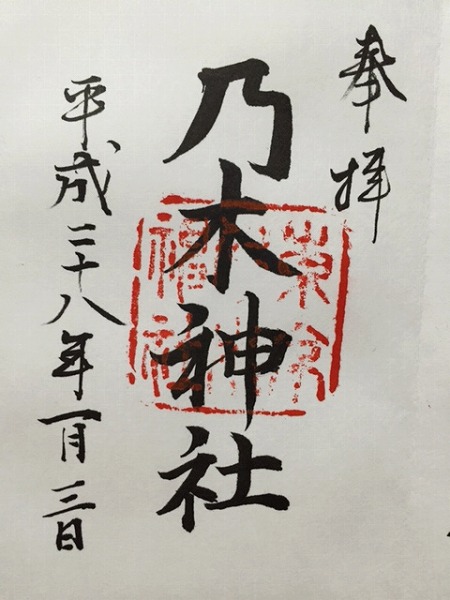 奉拝
乃木神社
平成二十八年一月三日